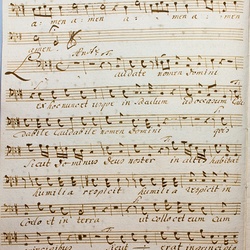 a: men a: men a: men a:
amen.
And:te
Laudate nomen Domini
ex hoc nunc et usque in Saeculum
Laudabile Laudabile nomen Domini
Sicut Dominus Deus noster in altis habitat
humilia respicit humilia respicit in
Coelo et in terra ut collocet eum cum
Sicut erat in principio